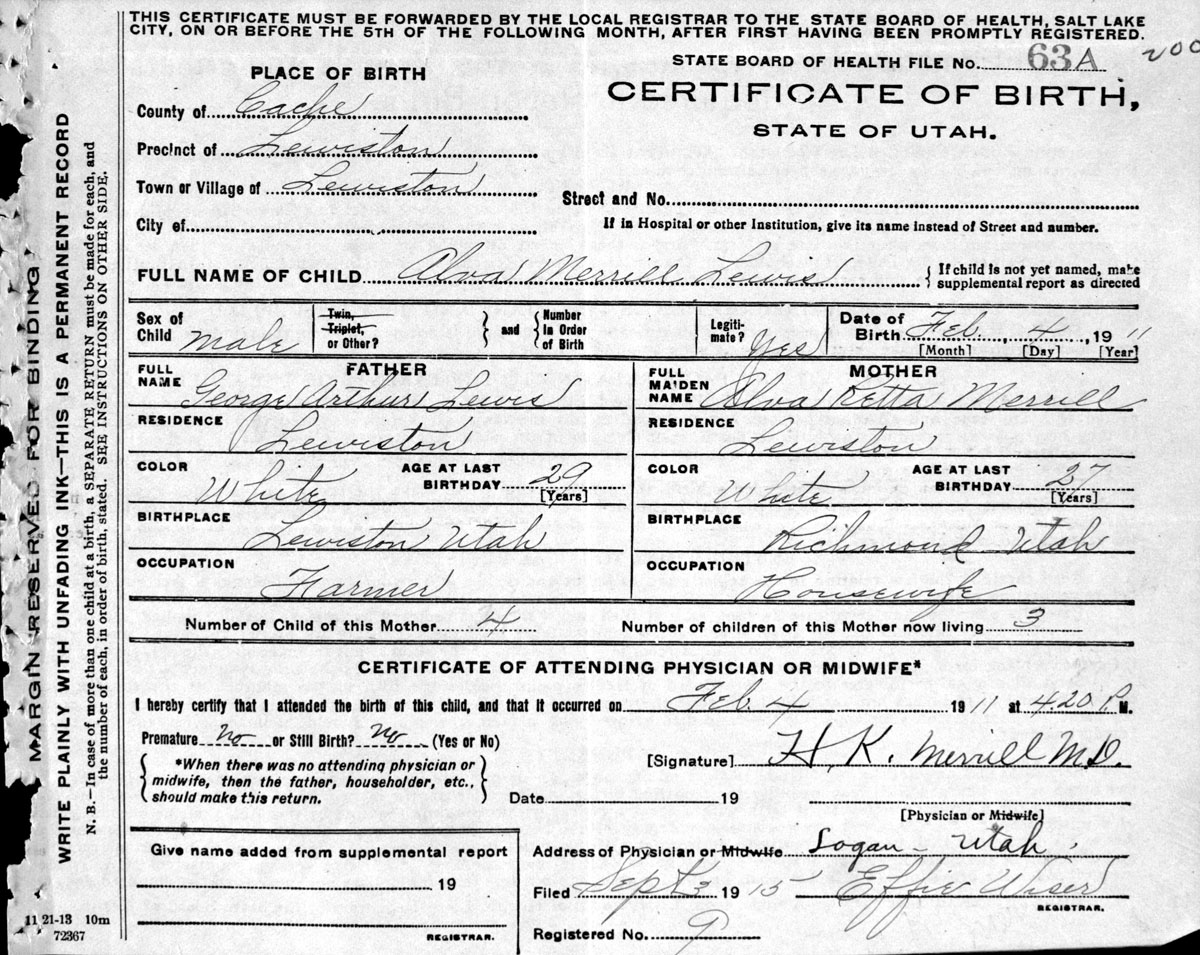 THIS CERTIFICATE MUST BE FORWARDED BY THE LOCAL REGISTRAR TO THE STATE BOARD OF HEALTH, SALT LAKE
CITY, ON OR BEFORE THE 5TH OF THE FOLLOWING MONTH, AFTER FIRST HAVING BEEN PROMPTLY REGISTERED.
200
STATE BOARD OF HEALTH FILE No. 63A
CERTIFICATE OF BIRTH,
STATE OF UTAH.
PLACE OF BIRTH
County of Cache
Precinct of Lewiston
Town or Village of Lewiston
Street and No.
City of
If in Hospital or other Institution, give its name instead of Street and number.
FULL NAME OF CHILD Alva Merrill Lewis
{ If child is not yet named, make
supplemental report as directed
Sex of Child male
Twin, Triplet, or Other? } and { Number in Order of Birth
Legiti-mate? Yes
Date of Birth Feb. 4, 1911
[Month] [Day] [Year]
FATHER
FULL NAME George Arthur Lewis
RESIDENCE Lewiston
COLOR White AGE AT LAST BIRTHDAY 29
[Years]
BIRTHPLACE Lewiston Utah
OCCUPATION Farmer
MOTHER
FULL MAIDEN NAME Alva Retta Merrill
RESIDENCE Lewiston
COLOR White AGE AT LAST BIRTHDAY 27
[Years]
BIRTHPLACE Richmond Utah
OCCUPATION Housewife
Number of Child of this Mother 4 Number of children of this Mother now living 3
CERTIFICATE OF ATTENDING PHYSICIAN OR MIDWIFE*
I hereby certify that I attended the birth of this child, and that it occurred on Feb 4 1911 at 4.20 P. M.
Premature no or Still Birth? no (Yes or No)
[Signature] H. K. Merrill M.D.
{ *When there was no attending physician or
midwife, then the father, householder, etc.,
should make this return. }
Date 19
[Physician or Midwife]
Give name added from supplemental report
19
REGISTRAR.
Address of Physician or Midwife Logan - Utah.
Filed Sept 3 1915 Effie Wiser
REGISTRAR.
Registered No. 9
MARGIN RESERVED FOR BINDING
WRITE PLAINLY WITH UNFADING INK—THIS IS A PERMANENT RECORD
N. B.—In case of more than one child at a birth, a SEPARATE RETURN must be made for each, and
the number of each, in order of birth, stated. SEE INSTRUCTIONS ON OTHER SIDE.
11 21-13 10m
72367